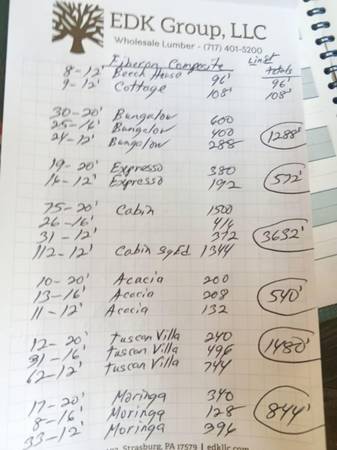 EDK Group, LLC
Wholesale Lumber - (717) 401-5200
Composite Totals
8-12' Beech House 96' 96'
9-12' Cottage 108' 108'
30-20' Bungalow 600
25-16' Bungalow 400 1288'
24-12' Bungalow 288
19-20' Expresso 380
16-12' Expresso 192 572'
75-20' Cabin 1500
26-16' 416
31-12' 372 3632'
112-12' Cabin SqEd 1344
10-20' Acacia 200
13-16' Acacia 208 540'
11-12' Acacia 132
12-20' Tuscan Villa 240
31-16' Tuscan Villa 496 1480'
62-12' Tuscan Villa 744
17-20' Moringa 340
8-16' Moringa 128 844'
33-12' Moringa 396
Strasburg, PA 17579 | edkllc.com